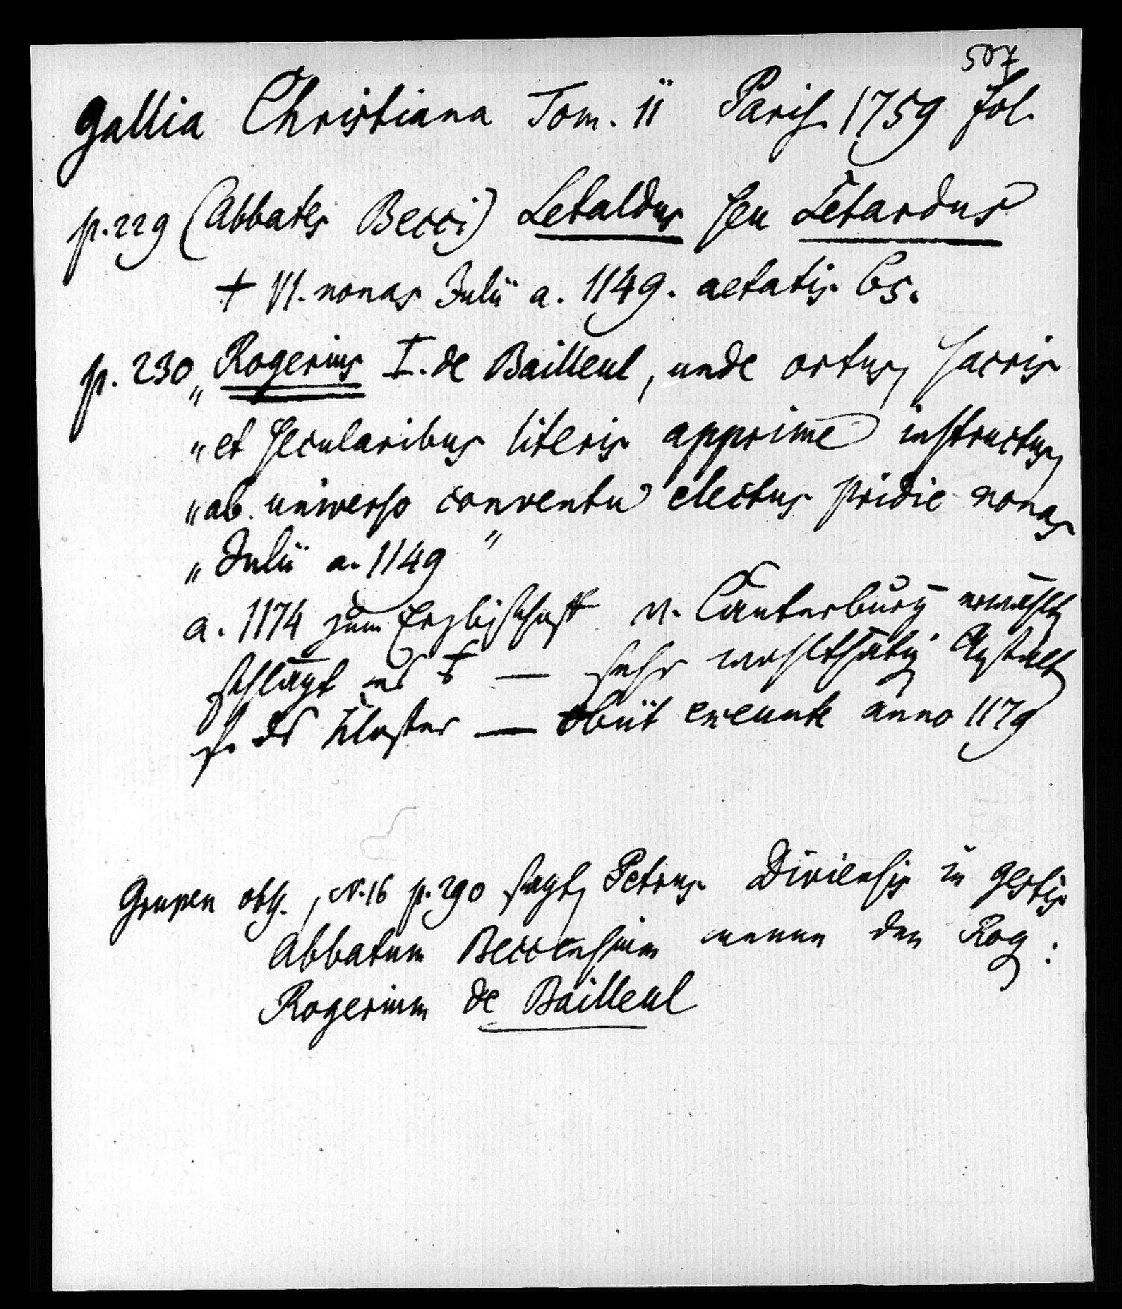 507
Gallia Christiana Tom. 11 Paris 1759 fol.
p. 229 (Abbates Becci) Letaldus seu Letardus
† VI. nonas Julii a. 1149. aetatis 65.
p. 230 „Rogerius I. de Bailleul, unde ortus, sacris
„et secularibus literis apprime instructus,
„ab universo conventu electus pridie nonas
„Julii a. 1149"
a. 1174 zum Erzbischoff v. Canterbury erwählt,
schlägt es — sehr wohlthätig
f. ds Kloster — obiit exeunte anno 1179
Grupen obs. N. 16 p. 290 sagt, Petrus Diviensis in gestis
Abbatum Beccensium nenne den Rog:
Rogerium de Bailleul